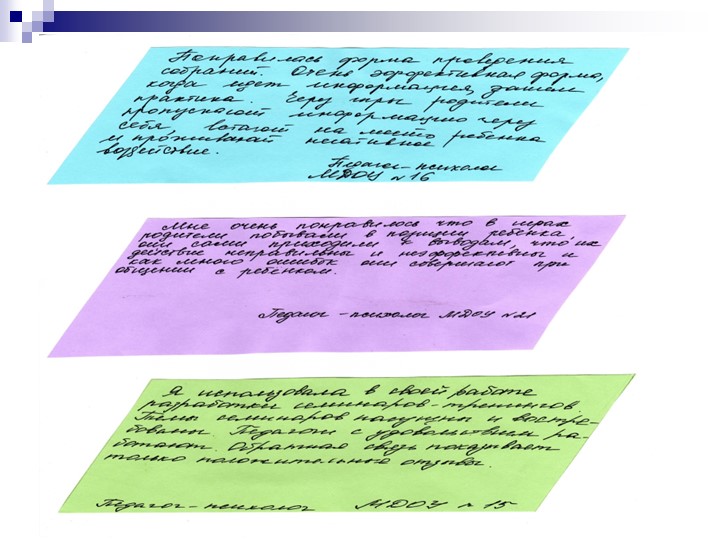 Понравилась форма проведения
собраний. Очень эффективная форма,
когда идет информация, затем
практика. Через игры родители
пропускают информацию через
себя, встают на место ребенка
и проживают негативное
воздействие.
Педагог-психолог
МДОУ №16
Мне очень понравилось что в играх
родители побывали в позиции ребенка,
они сами приходили к выводам, что их
действие неправильны и неэффективны и
как много ошибок они совершают при
общении с ребенком.
Педагог-психолог МДОУ №21
Я использовала в своей работе
разработки семинаров-тренингов
Темы семинаров насущны востре-
бованы Педагоги с удовольствием ра-
ботают. Обратная связь показывает
только положительные отзывы.
Педагог-психолог МДОУ №15